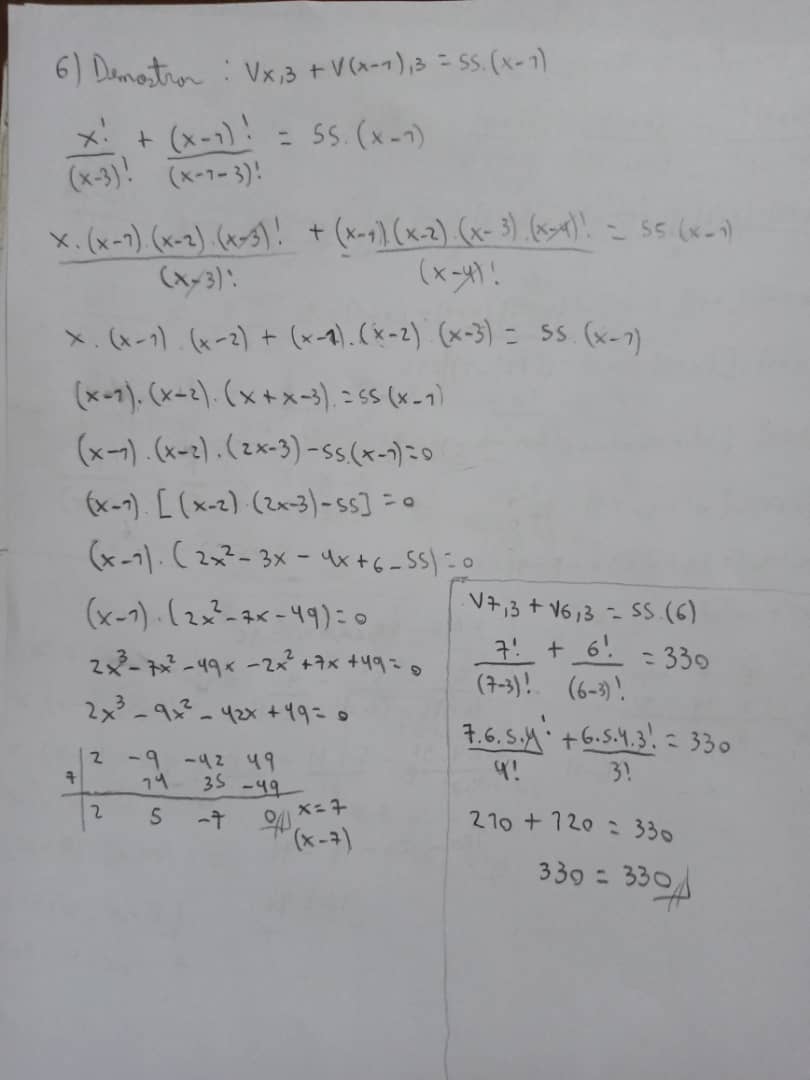 6) Demostrar : Vx,3 + V(x-1),3 = 55.(x-1)
x!/(x-3)! + (x-1)!/(x-1-3)! = 55.(x-1)
x.(x-1).(x-2).(x-3)!/(x-3)! + (x-1).(x-2).(x-3).(x-4)!/(x-4)! = 55.(x-1)
x.(x-1).(x-2) + (x-1).(x-2).(x-3) = 55.(x-1)
(x-1).(x-2).(x+x-3).=55(x-1)
(x-1).(x-2).(2x-3)-55.(x-1)=0
(x-1).[(x-2).(2x-3)-55]=0
(x-1).(2x²-3x-4x+6-55)=0
(x-1).(2x²-7x-49)=0
2x³-7x²-49x-2x²+7x+49=0
2x³-9x²-42x+49=0
2 -9 -42 49
7 14 35 -49
2 5 -7 0 x=7
(x-7)
V7,3 + V6,3 = 55.(6)
7!/(7-3)! + 6!/(6-3)! = 330
7.6.5.4!/4! + 6.5.4.3!/3! = 330
210 + 120 = 330
330 = 330